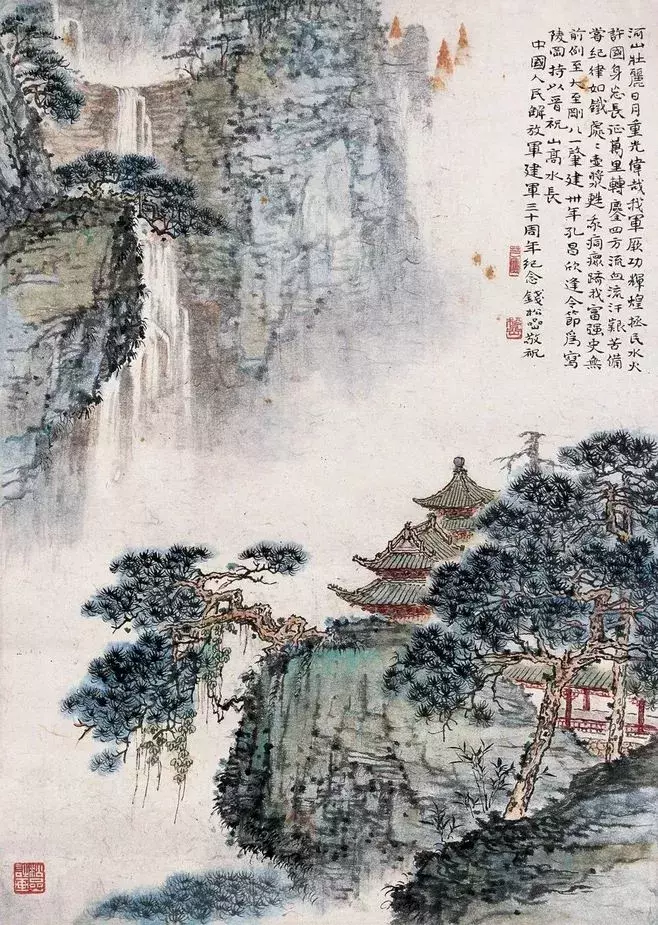 河山壯麗日月重光偉哉我軍厥功輝煌拯民水火
許國身忘長征萬里轉鏖四方流血流汗艱苦備
嘗紀律如鐵處〻壺漿甦痌瘝躋我富强史無
前例至大至剛八一肇建卅年孔昌欣逢令節爲寫
陵岡持以晉祝山高水長
中國人民解放軍建軍三十周年紀念 錢松喦敬祝